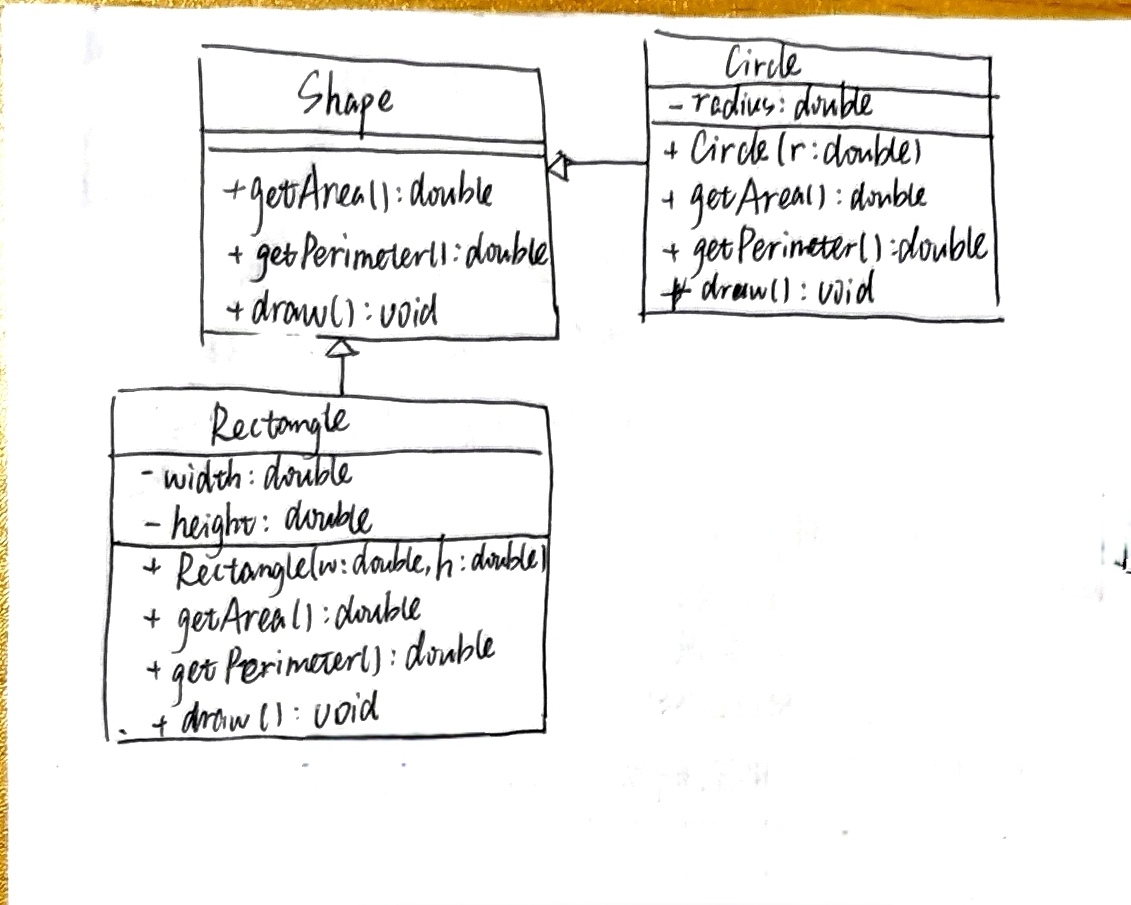 Shape
+ getArea(): double
+ getPerimeter(): double
+ draw(): void
Circle
- radius: double
+ Circle(r: double)
+ getArea(): double
+ getPerimeter(): double
+ draw(): void
Rectangle
- width: double
- height: double
+ Rectangle(w: double, h: double)
+ getArea(): double
+ getPerimeter(): double
+ draw(): void